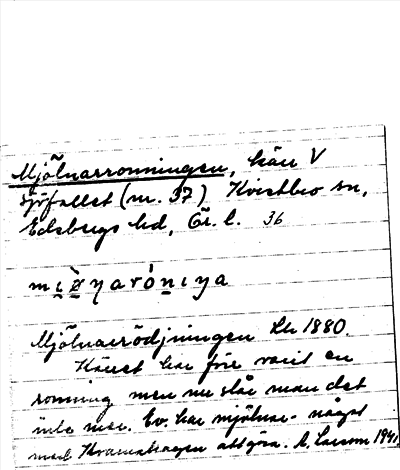 Mjölnarronningen, kärr V
Sjöfallet (nr. 37) Kvistbro sn,
Edsbergs hd, Ör. l. 36
mi̯ø̀ṇaròṇiŋa
Mjölnarrödjningen Lk 1880.
Kärret har förr varit en
ronning men nu slår man det
inte mer. Ev. har mjölnar- något
med Kvarnhagen att göra. A. Larsson 1941